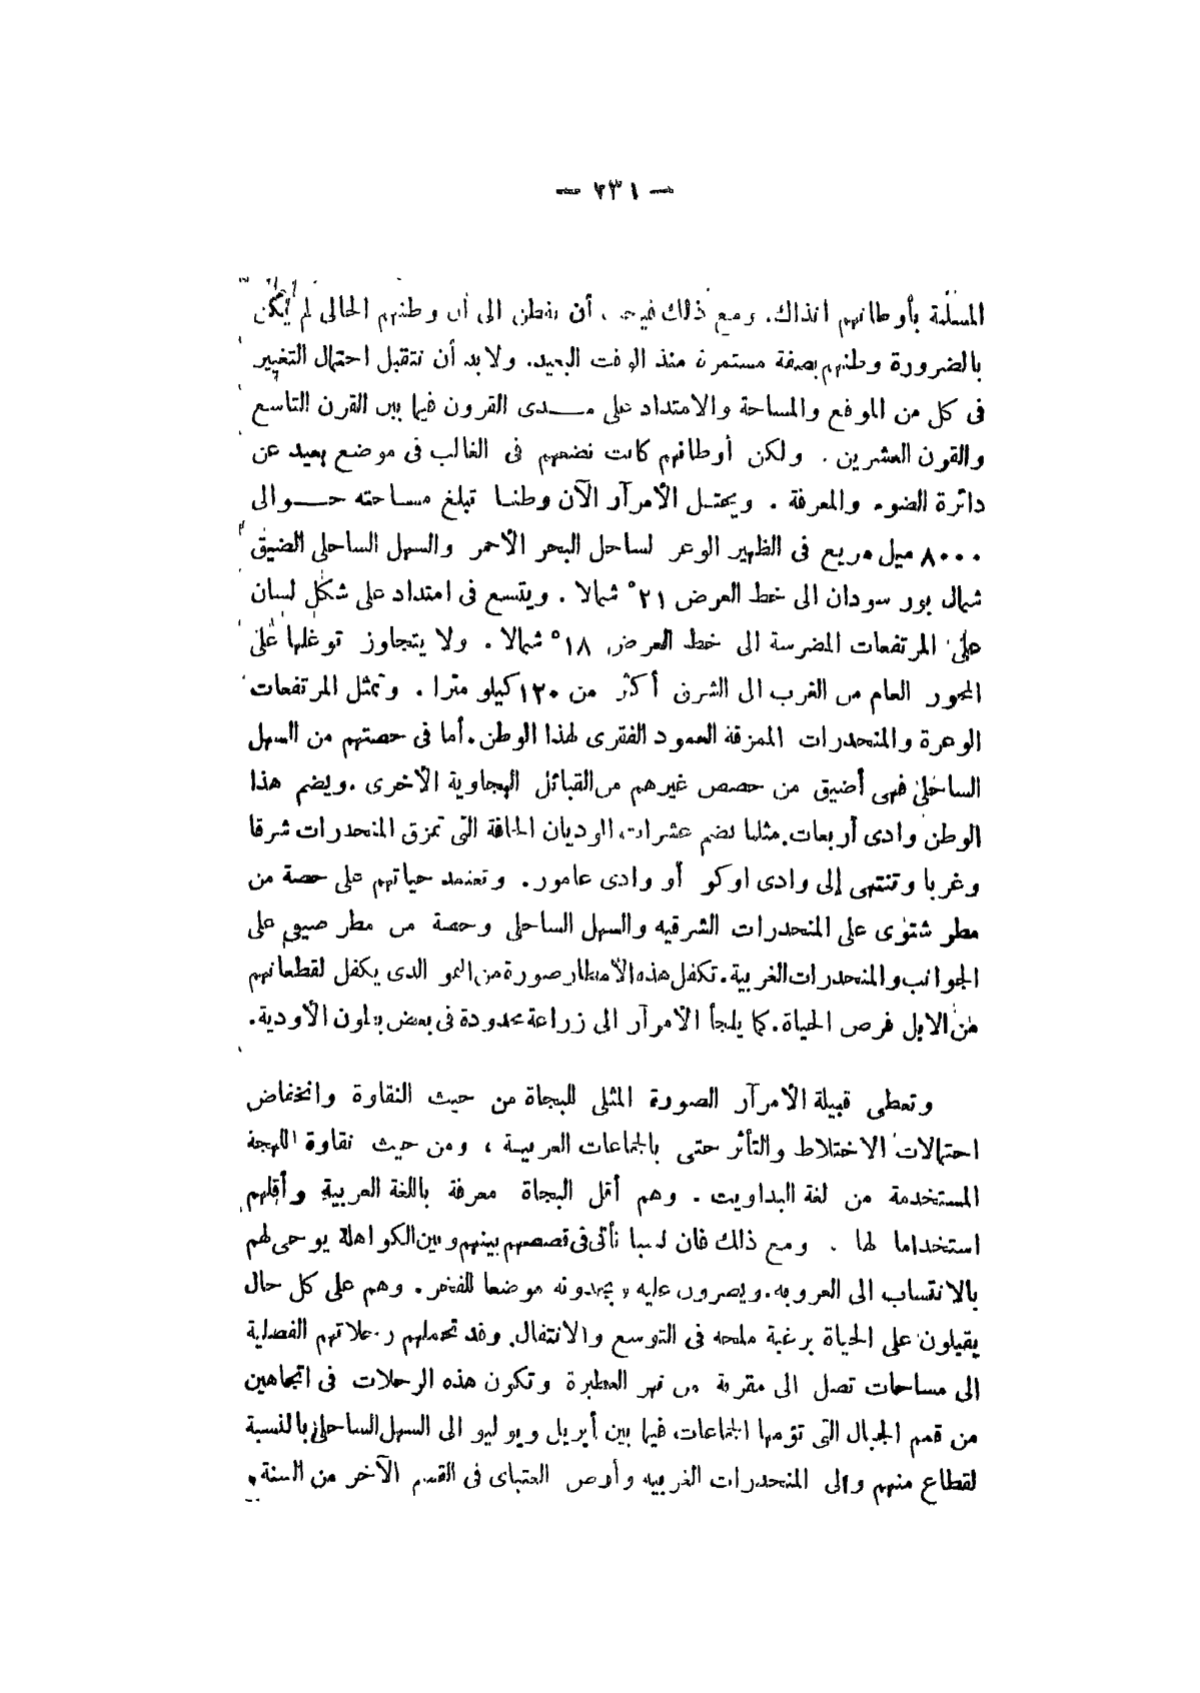 — ٢٣١ —
المسلمة بأوطانهم انذاك. ومع ذلك فيجب أن نفطن الى أن وطنهم الحالى لم يكن
بالضرورة وطنهم بصفة مستمرة منذ الوقت البعيد. ولابد أن نتقبل احتمال التغيير
فى كل من الموقع والمساحة والامتداد على مــدى القرون فيما بين القرن التاسع
والقرن العشرين . ولكن أوطانهم كانت تضعهم فى الغالب فى موضع بعيد عن
دائرة الضوء والمعرفة . ويحتـل الأمرآر الآن وطنـا تبلغ مسـاحته حــوالى
٨٠٠٠ ميل مربع فى الظهير الوعر لساحل البحر الأحمر والسهل الساحلى الضيق
شمال بور سودان الى خط العرض ٢١° شمالا . ويتسع فى امتداد على شكل لسان
على المرتفعات المضرسة الى خط العرض ١٨° شمالا . ولا يتجاوز توغلها على
المحور العام من الغرب الى الشرق أكثر من ١٢٠ كيلو مترا . وتمثل المرتفعات
الوعرة والمنحدرات الممزقة العمود الفقرى لهذا الوطن. أما فى حصتهم من السهل
الساحلى فهى أضيق من حصص غيرهم من القبائل البجاوية الأخرى . ويضم هذا
الوطن وادى أربعات. مثلما تضم عشرات الوديان الجافة التى تمزق المنحدرات شرقا
وغربا وتنتهى إلى وادى اوكو أو وادى عامور. وتعتمد حياتهم على حصة من
مطر شتوى على المنحدرات الشرقيه والسهل الساحلى وحصة من مطر صيفى على
الجوانب والمنحدرات الغربية. تكفل هذه الأمطار صورة من النمو الذى يكفل لقطعانهم
من الابل فرص الحياة. كما يلجأ الأمرآر الى زراعة محدودة فى بعض بطون الأودية.
وتعطى قبيلة الأمرآر الصورة المثلى للبجاة من حيث النقاوة وانخفاض
احتمالات الاختلاط والتأثر حتى بالجماعات العربيـة ، ومن حيث نقاوة اللهجة
المستخدمة من لغة البداويت . وهم أقل البجاة معرفة باللغة العربية وأقلهم
استخداما لها . ومع ذلك فان نسبا يأتى فى قصصهم بينهم وبين الكواهلة يوحى لهم
بالانتساب الى العروبه. ويصرون عليه ويجدونه موضعا للفخر . وهم على كل حال
يقبلون على الحياة برغبة ملحه فى التوسع والانتقال. وقد تحملهم رحلاتهم الفصلية
الى مساحات تصل الى مقربة من نهر العطبرة وتكون هذه الرحلات فى اتجاهين
من قمم الجبال التى تؤمها الجماعات فيما بين أبريل ويوليو الى السهل الساحلى بالنسبة
لقطاع منهم والى المنحدرات الغربيه وأرض العتباى فى القسم الآخر من السنة.